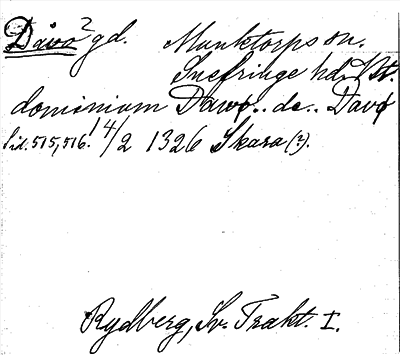 Dåvö? gd. Munktorps sn.
Snefringe hd. Vstm.
dominium Dawø.. de.. Davø
Sid. 515, 516. 14/2 1326 Skara (?).
Rydberg, Sv. Trakt. I.